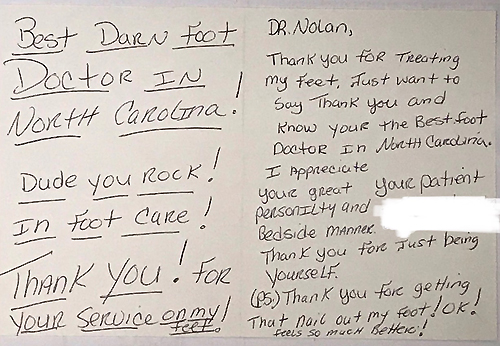 Best Darn Foot
Doctor In
North Carolina!
Dude you Rock!
In Foot Care!
Thank you! For
your Service on my!
feet!
DR. Nolan,
Thank you for Treating
my Feet, Just want to
Say Thank you and
Know your the Best foot
Doctor In North Carolina.
I Appreciate
your great your patient
personilty and
Bedside manner.
Thank you for Just being
yourself.
(PS.) Thank you for getting
That nail out my foot! OK!
feels so much Better!